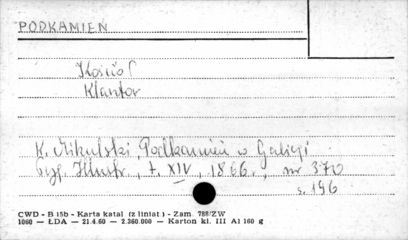 PODKAMIEŃ
Kościół
Klasztor
K. Mikulski, Podkamień w Galicyi
Tyg. Illustr., t. XIV, 1866., nr 370
s. 196
CWD - B 15b - Karta katal (z liniat) - Zam. 788/ZW
1060 — ŁDA — 21.4.60 — 2.360.000 — Karton kl. III A1 160 g